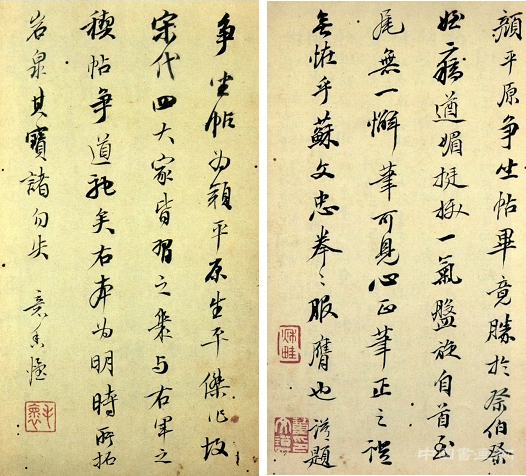 顏平原争坐帖畢竟勝於祭伯祭
姪二稿遒媚挺拔一氣盤旋自首至
尾無一懈筆可見心正筆正之證
無怪乎蘇文忠拳〻服膺也 題
争坐帖为顏平原生平傑作故
宋代四大家皆習之幾与右軍之
禊帖争道馳矣右本为明時所拓
岩泉其寶諸勿失